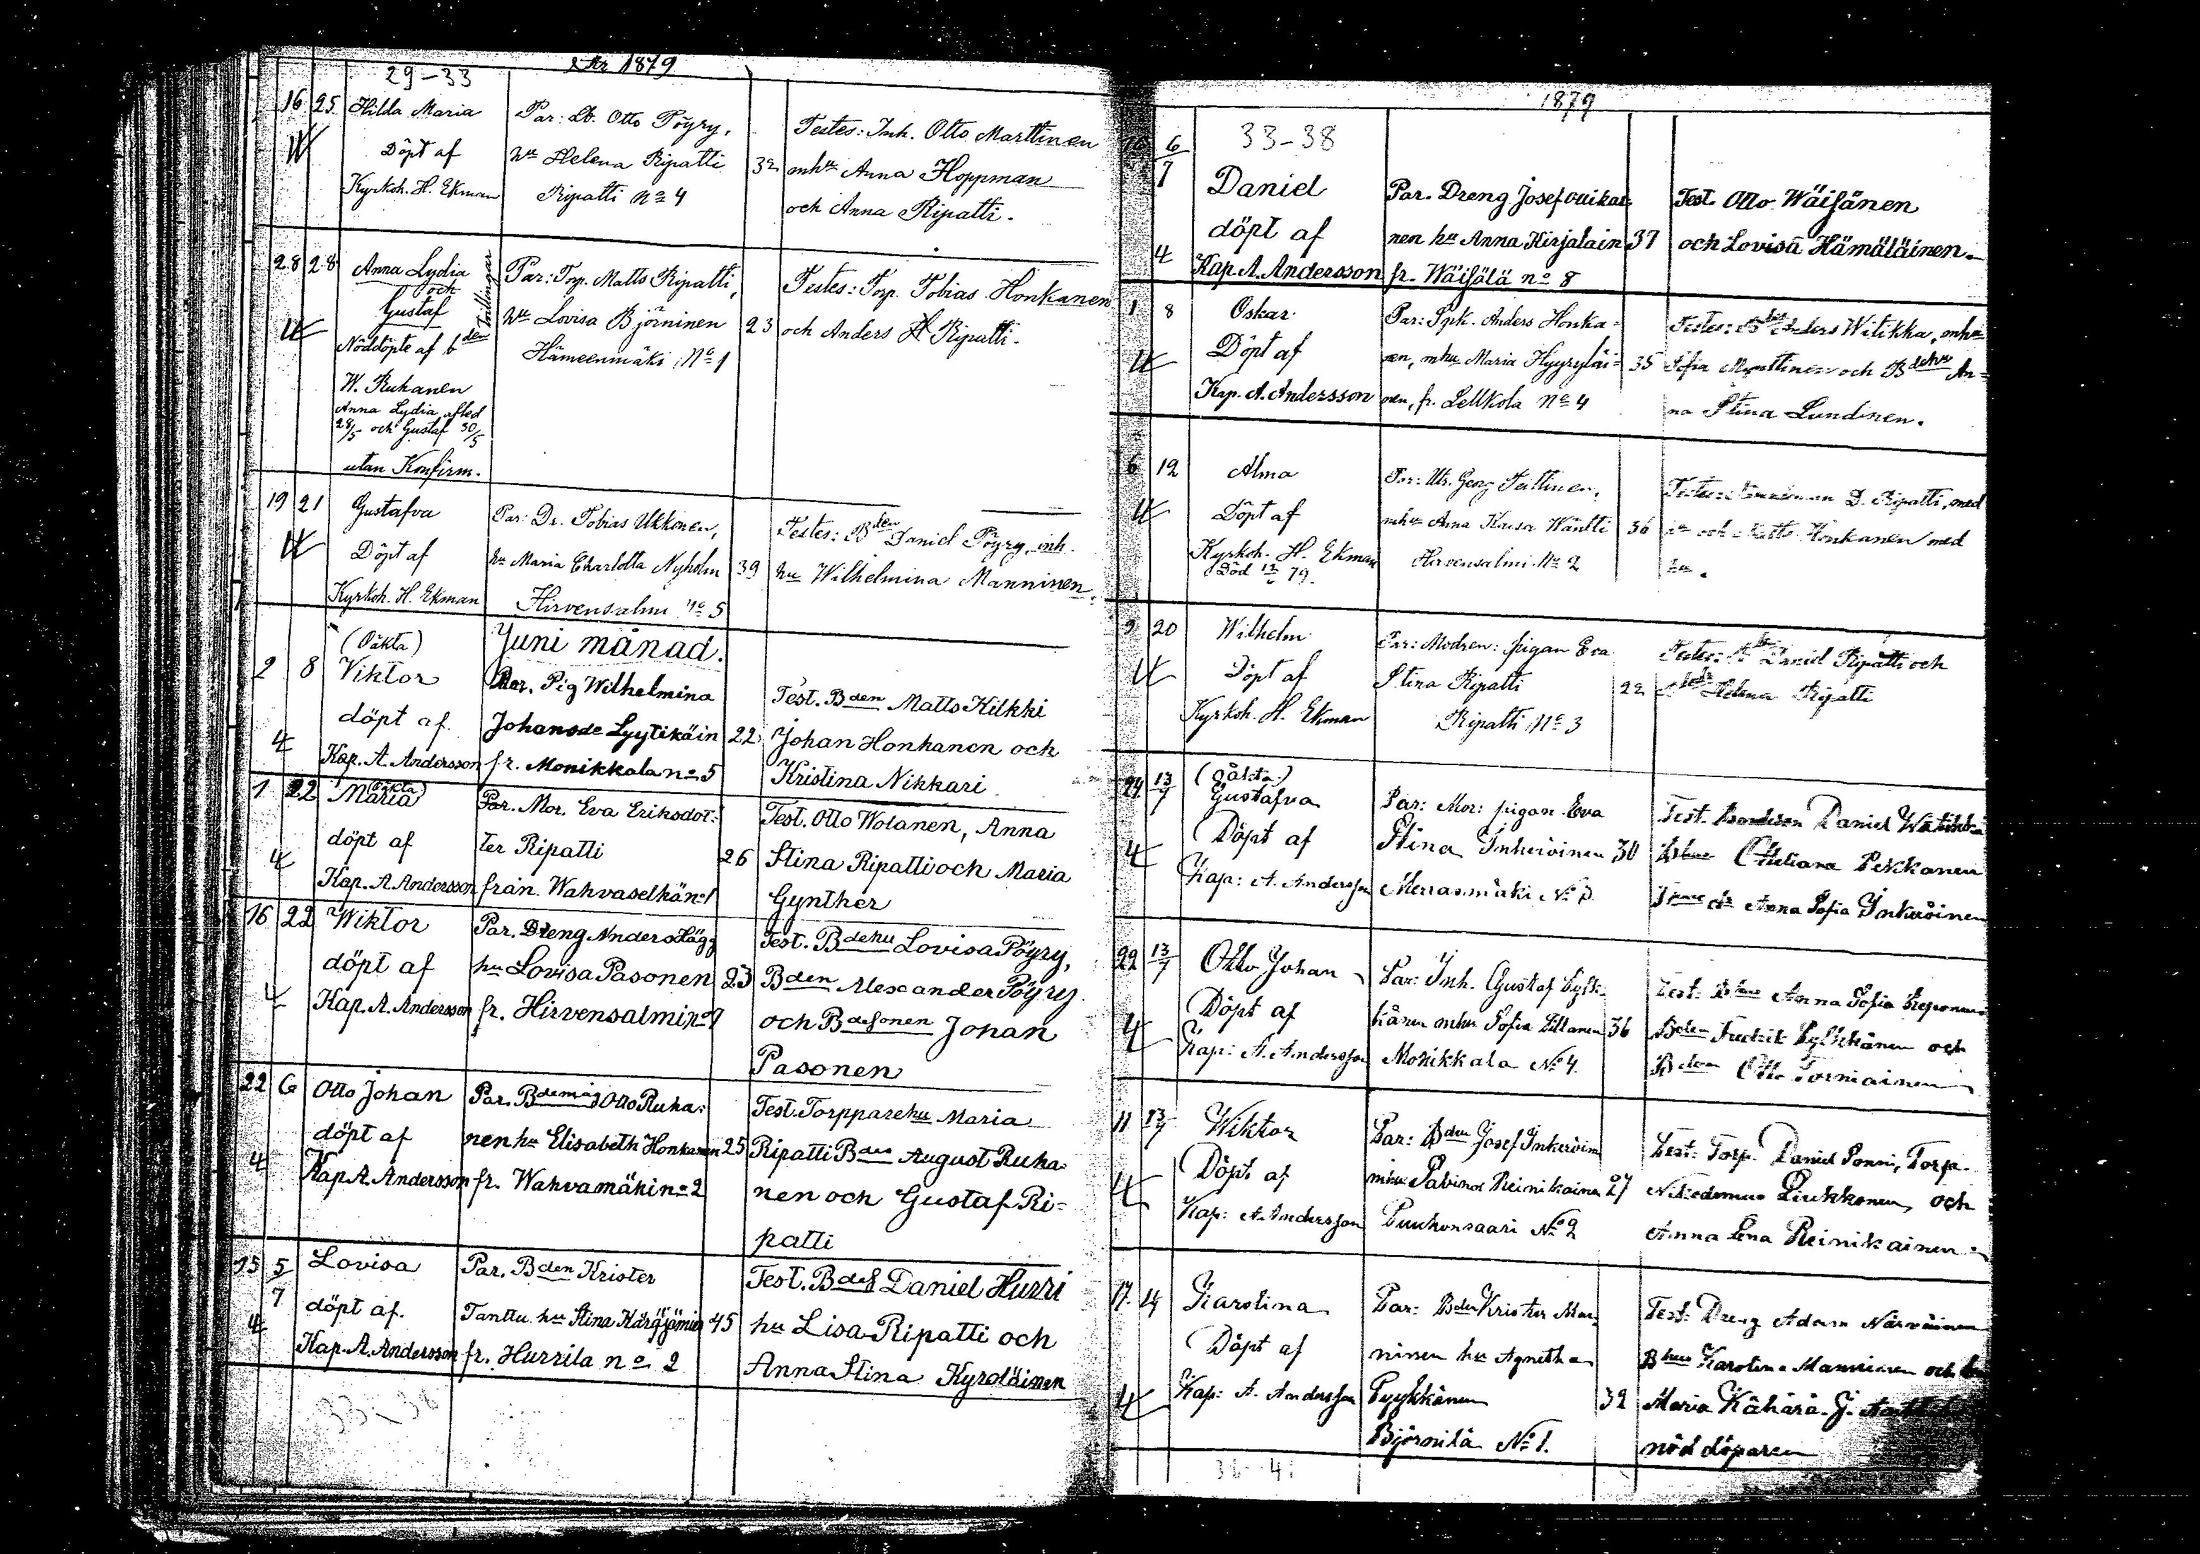 29-33
År 1879
16 25 Hilda Maria
Döpt af
Kyrkoh. H. Ekman
Par: Otto Pöyry,
hu Helena Ripatti 32
Ripatti No 4
Testes: Inh. Otto Marttinen
mhu Anna Hoppman
och Anna Ripatti.
28 28 Anna Lydia
och
Gustaf
tvillingar
Nöddöpte af bden
W. Ruhanen
Anna Lydia afled
28/5 och Gustaf 30/5
utan Konfirm.
Par: Torp. Matts Ripatti,
hu Lovisa Björninen 23
Hämeenmäki No 1
Testes: Torp. Tobias Honkanen
och Anders Ripatti.
19 21 Gustafva
Döpt af
Kyrkoh. H. Ekman
Par: Dr. Tobias Ukkonen,
hu Maria Charlotta Nyholm 39
Hirvensalmi No 5
Testes: Bden Daniel Pöyry, mh.
hu Wilhelmina Manninen.
Juni månad.
2 8 (Oäkta)
Viktor
döpt af.
Kap. A. Andersson
Mor. Pig Wilhelmina
Johansde Lyytikäin 22
fr. Monikkala no 5
Test. Bden Matts Kilkki
Johan Honkanen och
Kristina Nikkari
1 22 (Oäkta)
Maria
döpt af
Kap. A. Andersson
Par. Mor. Eva Eriksdot:
ter Ripatti 26
från Wahvaselkä no 1
Test. Otto Wolanen, Anna
Stina Ripatti och Maria
Gynther
16 22 Wiktor
döpt af
Kap. A. Andersson
Par. Dreng Anders
hu Lovisa Pasonen 23
fr. Hirvensalmi no 7
Test. Bdehu Lovisa Pöyry,
Bden Alexander Pöyry
och Bdesonen Johan
Pasonen
22 6 Otto Johan
döpt af
Kap. A. Andersson
Par. Bdemåg Otto Ruha:
nen hu Elisabeth Honkanen 25
fr. Wahvamäki no 2
Test. Torpparehu Maria
Ripatti Bdes August Ruha
nen och Gustaf Ri-
patti
15 5/7 Lovisa
döpt af.
Kap. A. Andersson
Par. Bden Krister
Tanttu hu Stina 45
fr. Hurrila no 2
Test. Bdes Daniel Hurri
hu Lisa Ripatti och
Anna Stina Kyröläinen
33-38
1879
33-38
6/7 Daniel
döpt af
Kap. A. Andersson
Par. Dreng Josef Ouikai-
nen hu Anna Hirjalain 37
fr. Wäisälä no 8
Test. Otto Wäisänen
och Lovisa Hämäläinen.
1 8 Oskar
Döpt af
Kap. A. Andersson
Par: Spk. Anders Honka-
nen, mhu Maria Hyyryläi- 35
nen, fr. Lellkola No 4
Testes: Anders Witikka, mhu
Sofia Marttinen och Bdehu An-
na Stina Lundinen.
6 12 Alma
Döpt af
Kyrkoh. H. Ekman
Död 79.
Par: Georg Tuttinen,
mhu Anna Kaisa Wäntti 36
Hirvensalmi No 2
Testes: D. Ripatti, med
hu och Matts Honkanen med
hu.
9 20 Wilhelm
Döpt af
Kyrkoh. H. Ekman
Par: Modren: pigan Eva
Stina Ripatti 22
Ripatti No 3
Testes: Daniel Ripatti och
Helena Ripatti
24 13/7 (oäkta)
Gustafva
Döpt af
Kap: A. Andersson
Par: Mor: pigan Eva
Stina Inkeroinen 30
Merrasmäki No
Test. bonden Daniel
Otteliana Pekkanen
Anna Sofia Inkeroinen
22 13/7 Otto Johan
Döpt af
Kap: A. Andersson
Par: Inh. Gustaf Pylk-
känen mhu Sofia 36
Monikkala No 4.
Test: Anna Sofia Reponen
Bden Fredrik Pylkkänen och
Bden Otto Torniainen
11 13/7 Wiktor
Döpt af
Kap: A. Andersson
Par: Bden Josef Inkeroin
mhu Sabina Reinikaine 27
Puukonsaari No 2
Test: Torp. Daniel Ponni, Torp.
Nikodemus Liukkonen, och
Anna Lena Reinikainen
17. 14 Karolina
Döpt af
Kap: A. Andersson
Par: Bden Krister Man-
ninen hu Agnetha
Pyykkänen 32
Björnilä No 1.
Test: Dreng Adam Närväinen
Bhu Karolina Manninen och
Maria Kähärä. J.
nöddöparen